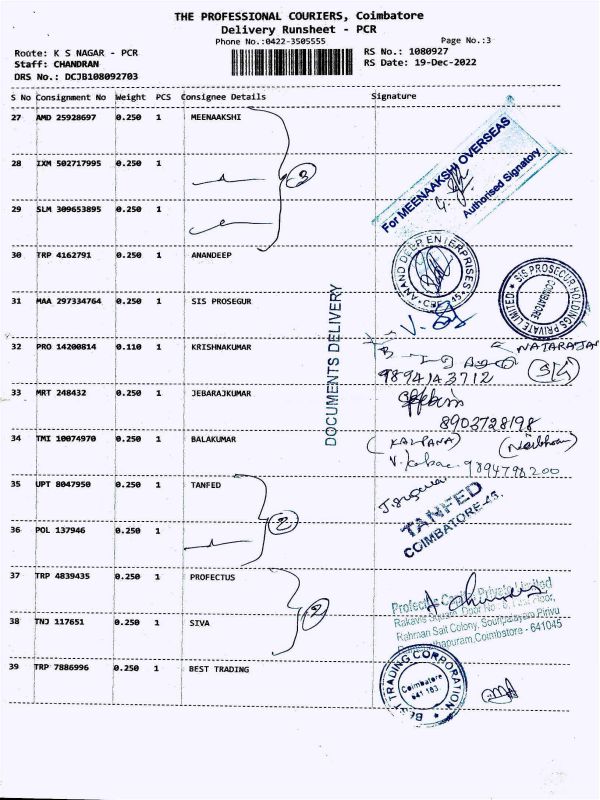 THE PROFESSIONAL COURIERS, Coimbatore
Delivery Runsheet - PCR
Phone No.:0422-3505555
Page No.:3
Route: K S NAGAR - PCR
RS No.: 1080927
Staff: CHANDRAN
RS Date: 19-Dec-2022
DRS No.: DCJB108092703
S No Consignment No Weight PCS Consignee Details Signature
27 AMD 25928697 0.250 1 MEENAAKSHI
28 IXM 502717995 0.250 1
3
29 SLM 309653895 0.250 1
For MEENAAKSHI OVERSEAS
Authorised Signatory
30 TRP 4162791 0.250 1 ANANDEEP
ANAND DEEP ENTERPRISES
CBE - 45
31 MAA 297334764 0.250 1 SIS PROSEGUR
SIS PROSEGUR HOLDINGS PRIVATE LIMITED
COIMBATORE
DOCUMENTS DELIVERY
32 PRO 14200814 0.110 1 KRISHNAKUMAR
NATARAJAN
9894143712
33 MRT 248432 0.250 1 JEBARAJKUMAR
8903728198
34 TMI 10074970 0.250 1 BALAKUMAR
(KALPANA)
9894798200
35 UPT 8047950 0.250 1 TANFED
2
TANFED
COIMBATORE-43.
36 POL 137946 0.250 1
37 TRP 4839435 0.250 1 PROFECTUS
2
Profectus Capital Private Limited
38 TNJ 117651 0.250 1 SIVA
Rahman Sait Colony, Sowripalayam Pirivu
Coimbatore - 641045
39 TRP 7886996 0.250 1 BEST TRADING
BEST TRADING CORPORATION
Coimbatore
641 103